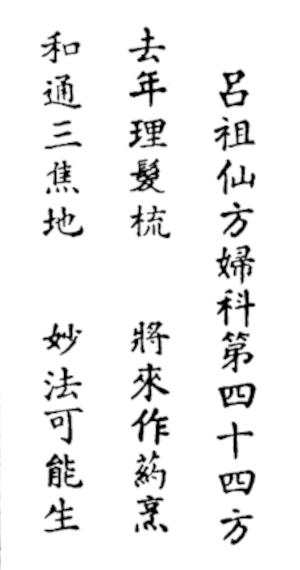 呂祖仙方婦科第四十四方
去年理髮梳　將來作葯烹
和通三焦地　妙法可能生